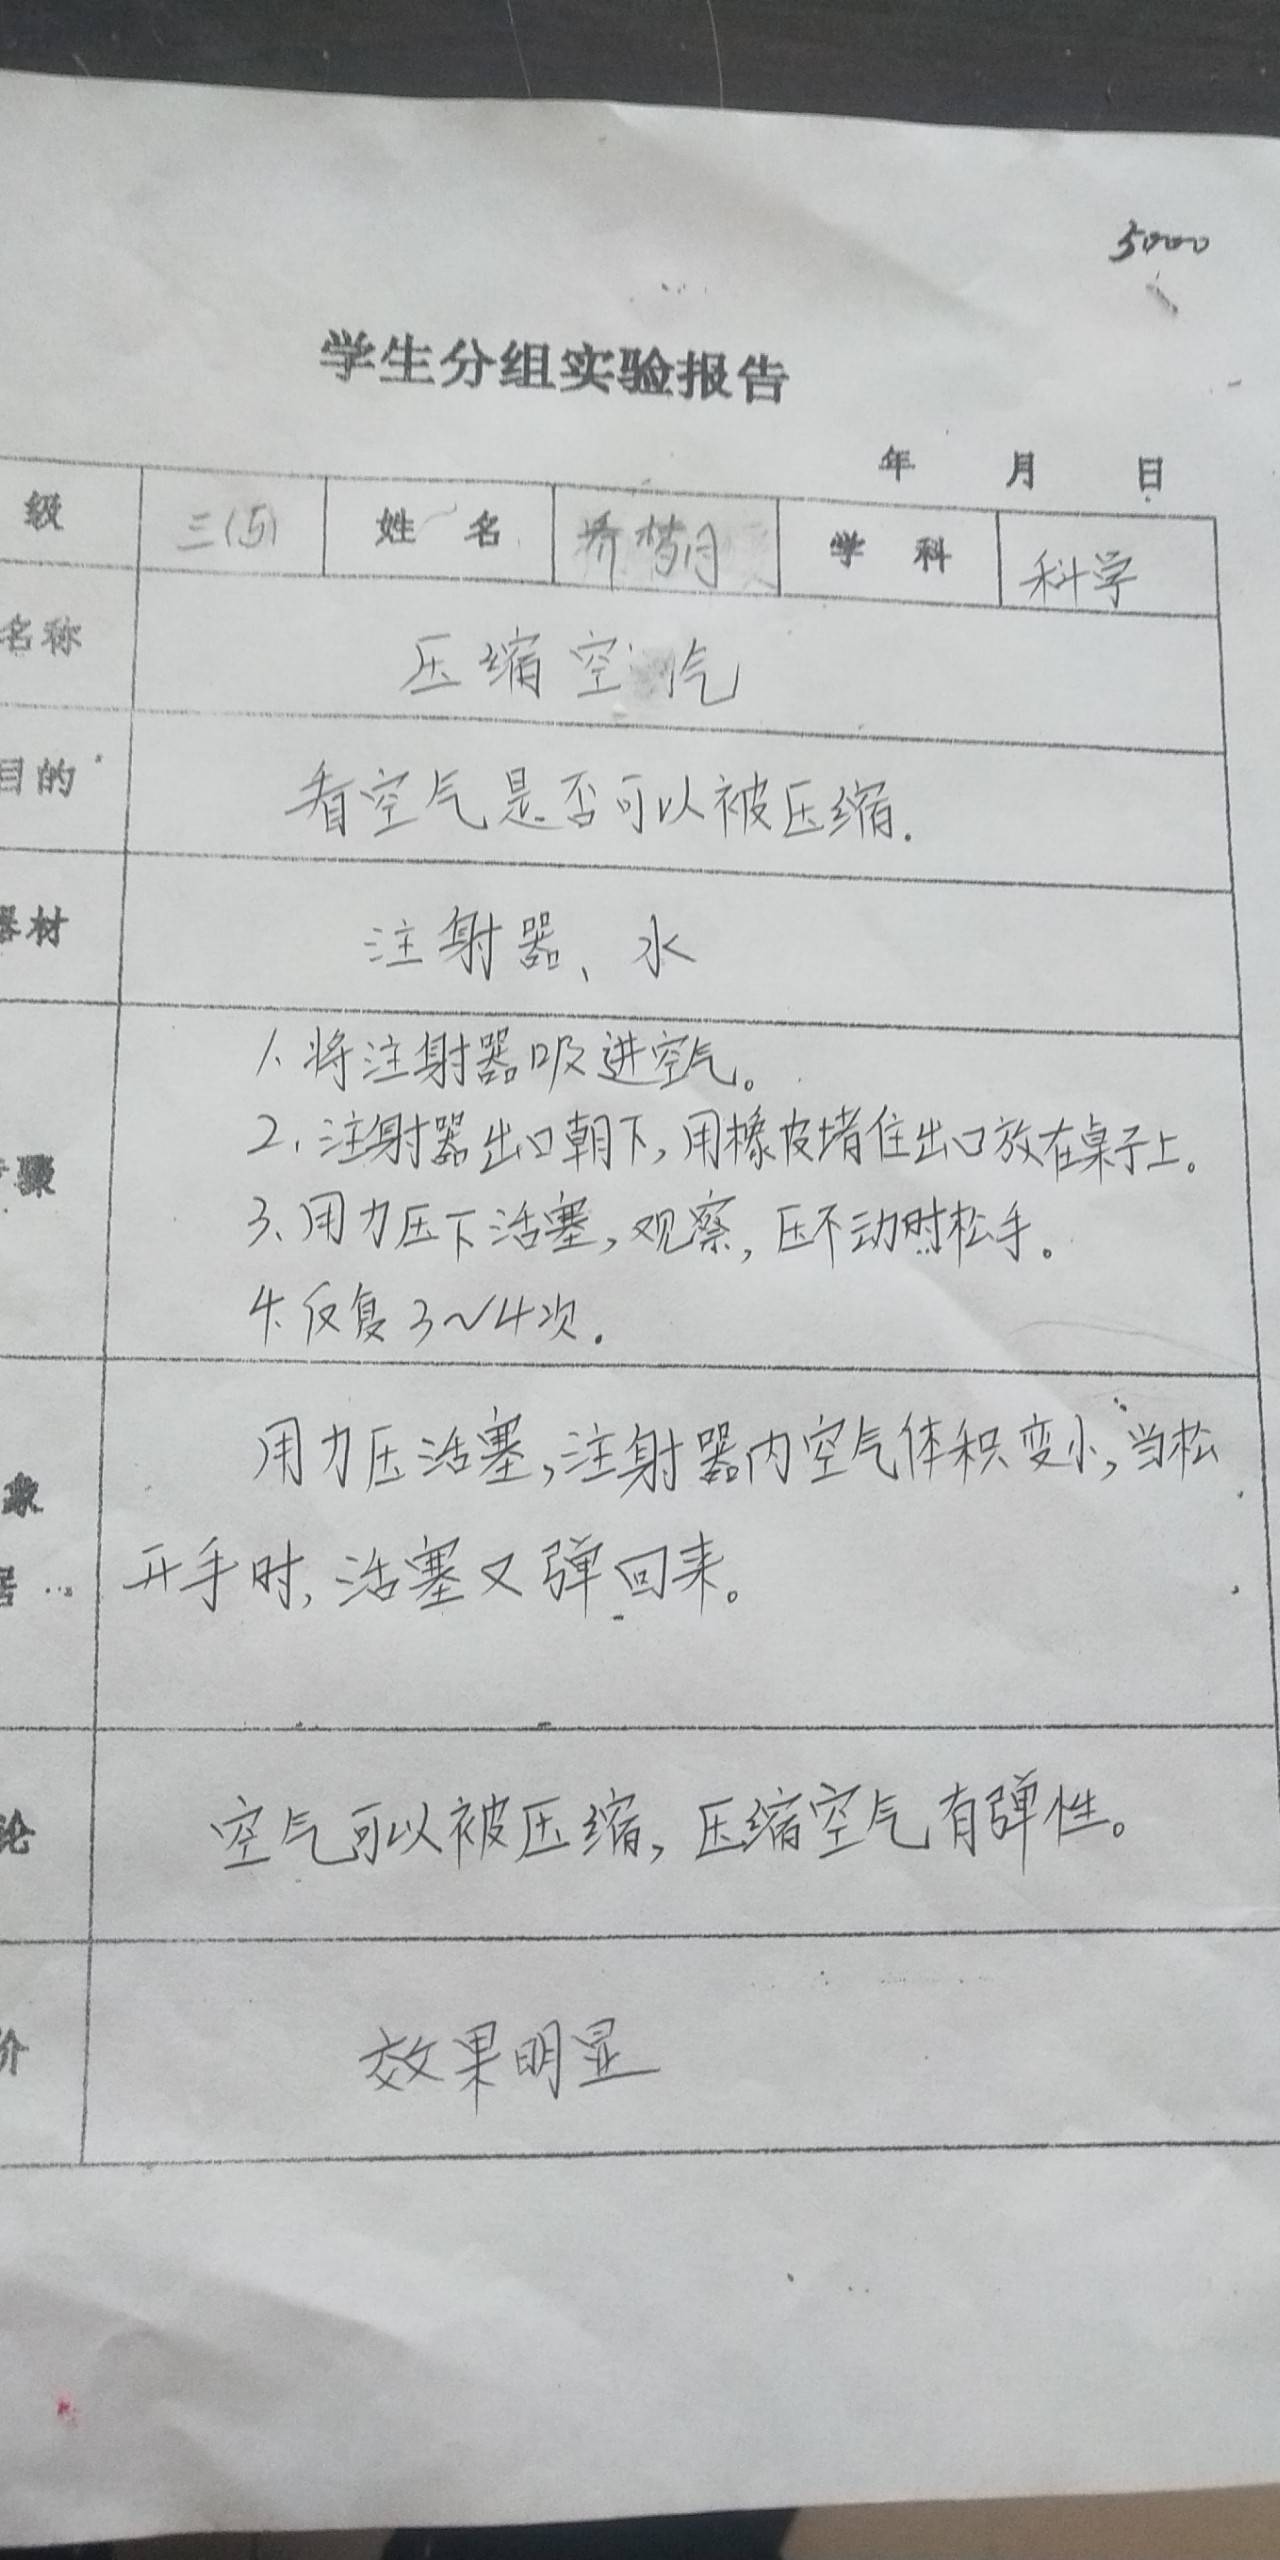 5000
学生分组实验报告
年 月 日
级 三(5) 姓 名 乔梦月 学 科 科学
名称 压缩空气
目的 看空气是否可以被压缩.
器材 注射器、水
1、将注射器吸进空气。
2、注射器出口朝下,用橡皮堵住出口放在桌子上。
骤 3、用力压下活塞,观察,压不动时松手。
4、反复3~4次.
用力压活塞,注射器内空气体积变小,当松
象
开手时,活塞又弹回来。
论 空气可以被压缩,压缩空气有弹性。
价 效果明显